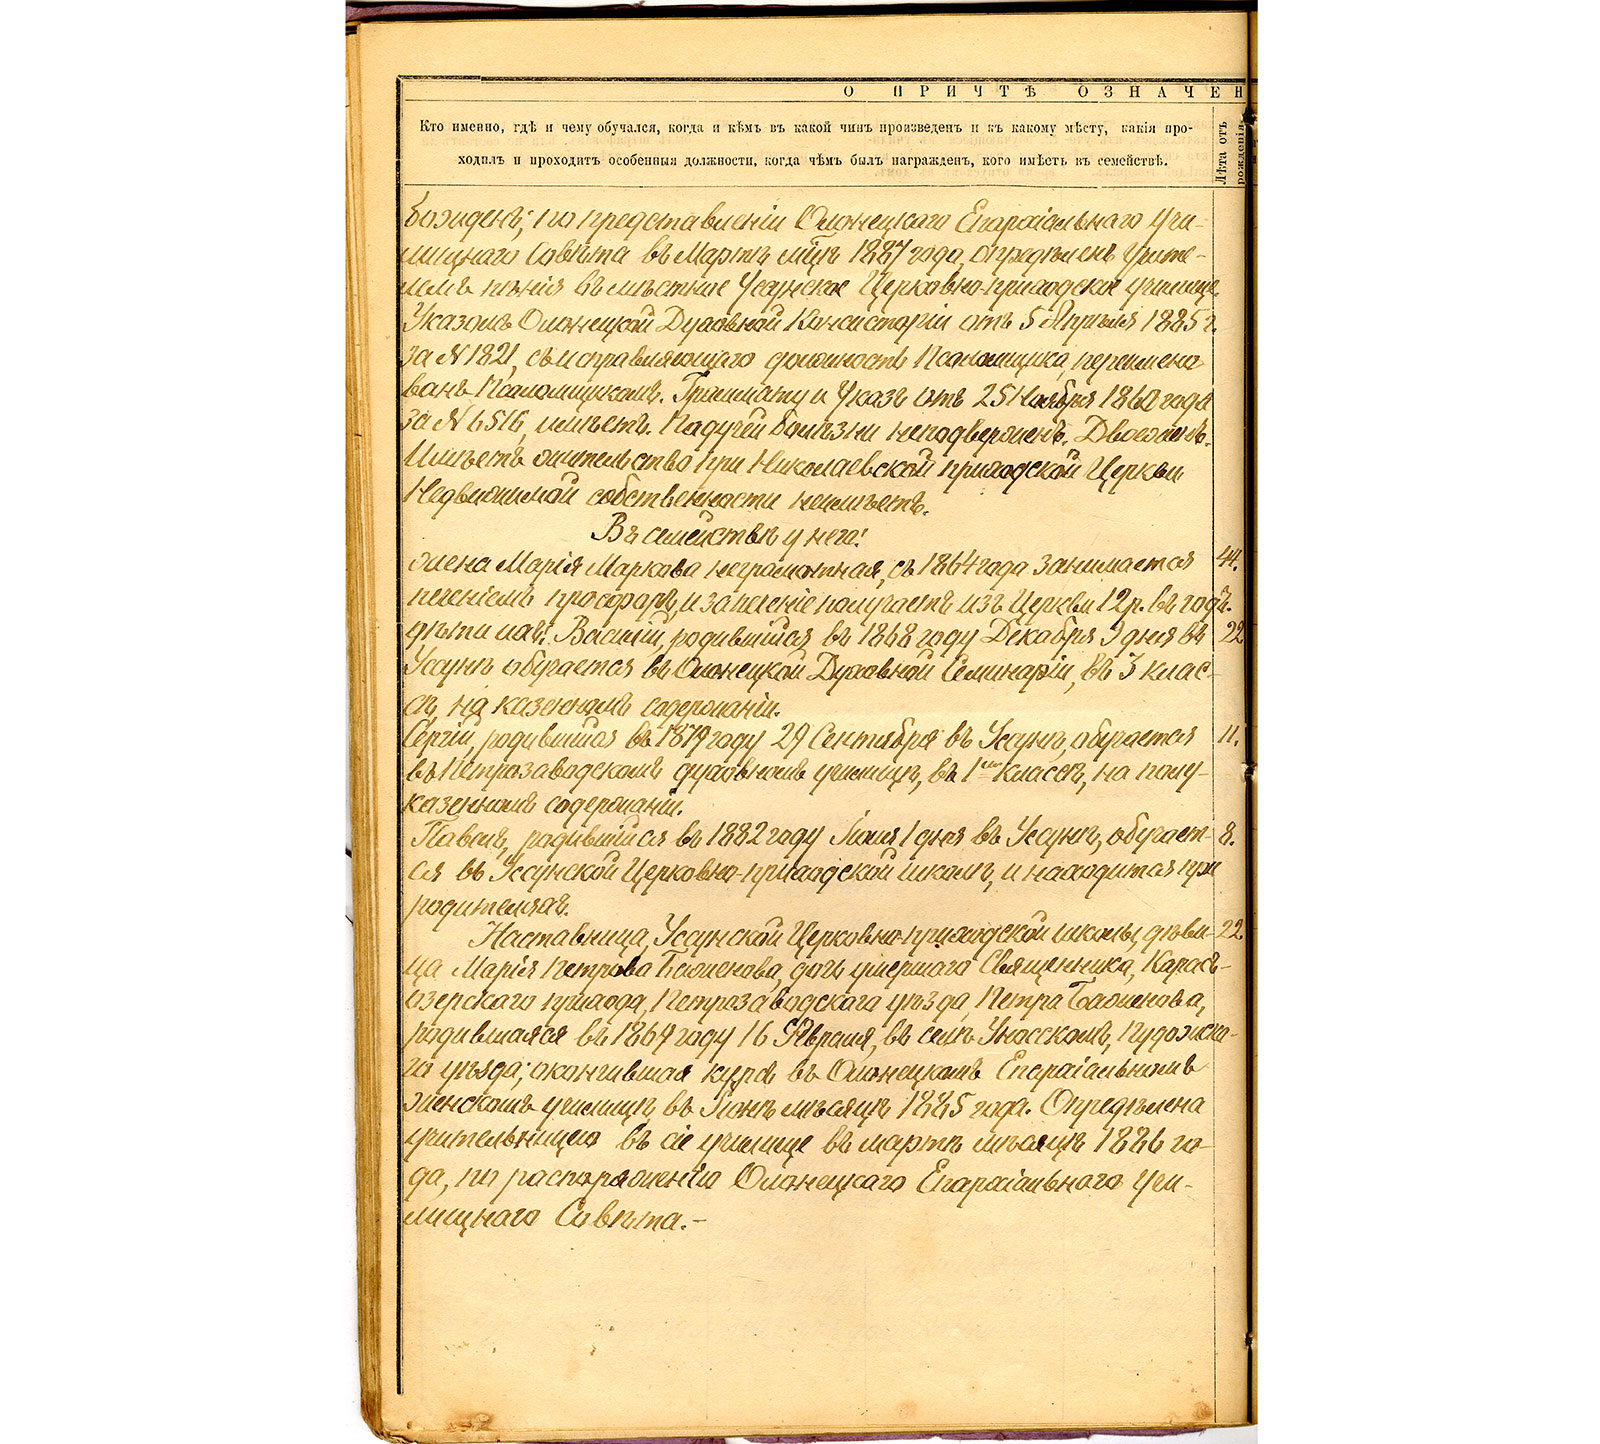 О ПРИЧТѢ ОЗНАЧЕН
Кто именно, гдѣ и чему обучался, когда и кѣмъ въ какой чинъ произведенъ и къ какому мѣсту, какія про-
ходилъ и проходитъ особенныя должности, когда чѣмъ былъ награжденъ, кого имѣетъ въ семействѣ.
Лѣта отъ
рожденія.
божденъ; по представленіи Олонецкаго Епархіальнаго Учи-
лищнаго Совѣта въ Мартѣ мцѣ 1887 года, опредѣленъ Учите-
лемъ пѣнія въ мѣстное Усунское Церковно-приходское училище.
Указомъ Олонецкой Духовной Консисторіи отъ 5 Апрѣля 1885 г.
за N 1821, съ исправляющаго должность Псаломщика, переимено-
ванъ Псаломщикомъ. Грамматку и Указъ отъ 25 Ноября 1860 года
за N 6516, имѣетъ. Падучей болѣзни неподверженъ.
Имѣетъ жительство при Николаевской приходской Церкви
Недвижимой собственности неимѣетъ.
Въ семействѣ у него:
жена Марія Маркова неграмотная, съ 1864 года занимается 44.
печеніемъ просфоръ, и за печеніе получаетъ изъ Церкви 12 р. въ годъ.
дѣти ихъ: Василій, родившійся въ 1868 году Декабря 9 дня въ 22
Усунѣ обучается въ Олонецкой Духовной Семинаріи, въ 3 клас-
сѣ, на казенномъ содержаніи.
Сергій, родившійся въ 1879 году 29 Сентября въ Усунѣ, обучается 11.
въ Петрозаводскомъ духовномъ училищѣ, въ 1мъ классѣ, на полу-
казенномъ содержаніи.
Павелъ, родившійся въ 1882 году Іюня 1 дня въ Усунѣ, обучает- 8.
ся въ Усунской Церковно-приходской школѣ, и находится при
родителяхъ.
Наставница, Усунской Церковно-приходской школы, дѣви- 22
ца Марія Петрова Баженова, дочь умершаго Священника, Карасъ-
озерскаго прихода, Петрозаводскаго уѣзда, Петра Баженова,
родившаяся въ 1869 году 16 Февраля, въ селѣ Пудожска-
го уѣзда; окончившая курсъ въ Олонецкомъ Епархіальномъ
женскомъ училищѣ въ Іюнѣ мѣсяцѣ 1885 года. Опредѣлена
учительницею въ сіе училище въ мартѣ мѣсяцѣ 1886 го-
да, по распоряженію Олонецкаго Епархіальнаго Учи-
лищнаго Совѣта.-